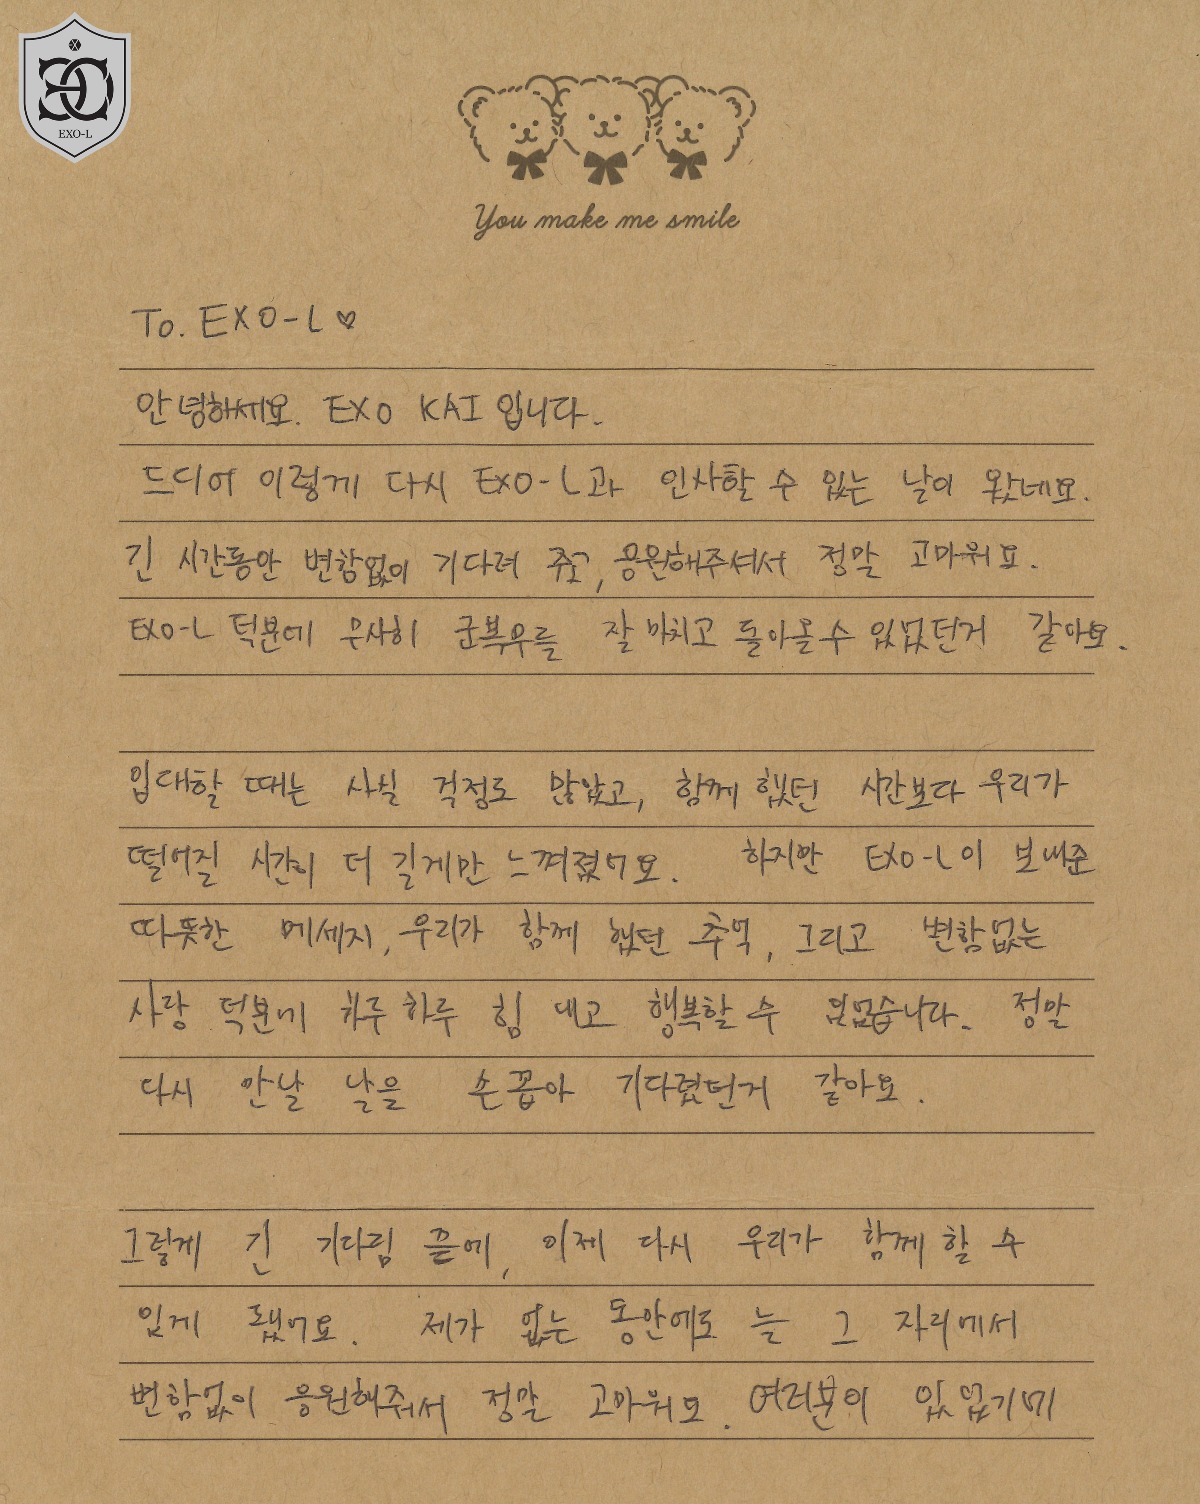 EXO-L
You make me smile
To. EXO-L ♡
안녕하세요. EXO KAI 입니다.
드디어 이렇게 다시 EXO-L과 인사할 수 있는 날이 왔네요.
긴 시간동안 변함없이 기다려 주고, 응원해주셔서 정말 고마워요.
EXO-L 덕분에 무사히 군복무를 잘 마치고 돌아올 수 있었던거 같아요.
입대할 때는 사실 걱정도 많았고, 함께 했던 시간보다 우리가
떨어질 시간이 더 길게만 느껴졌어요. 하지만 EXO-L이 보내준
따뜻한 메세지, 우리가 함께 했던 추억, 그리고 변함없는
사랑 덕분에 하루 하루 힘 내고 행복할 수 있었습니다. 정말
다시 만날 날을 손꼽아 기다렸던거 같아요.
그렇게 긴 기다림 끝에, 이제 다시 우리가 함께 할 수
있게 됐어요. 제가 없는 동안에도 늘 그 자리에서
변함없이 응원해줘서 정말 고마워요. 여러분이 있었기에